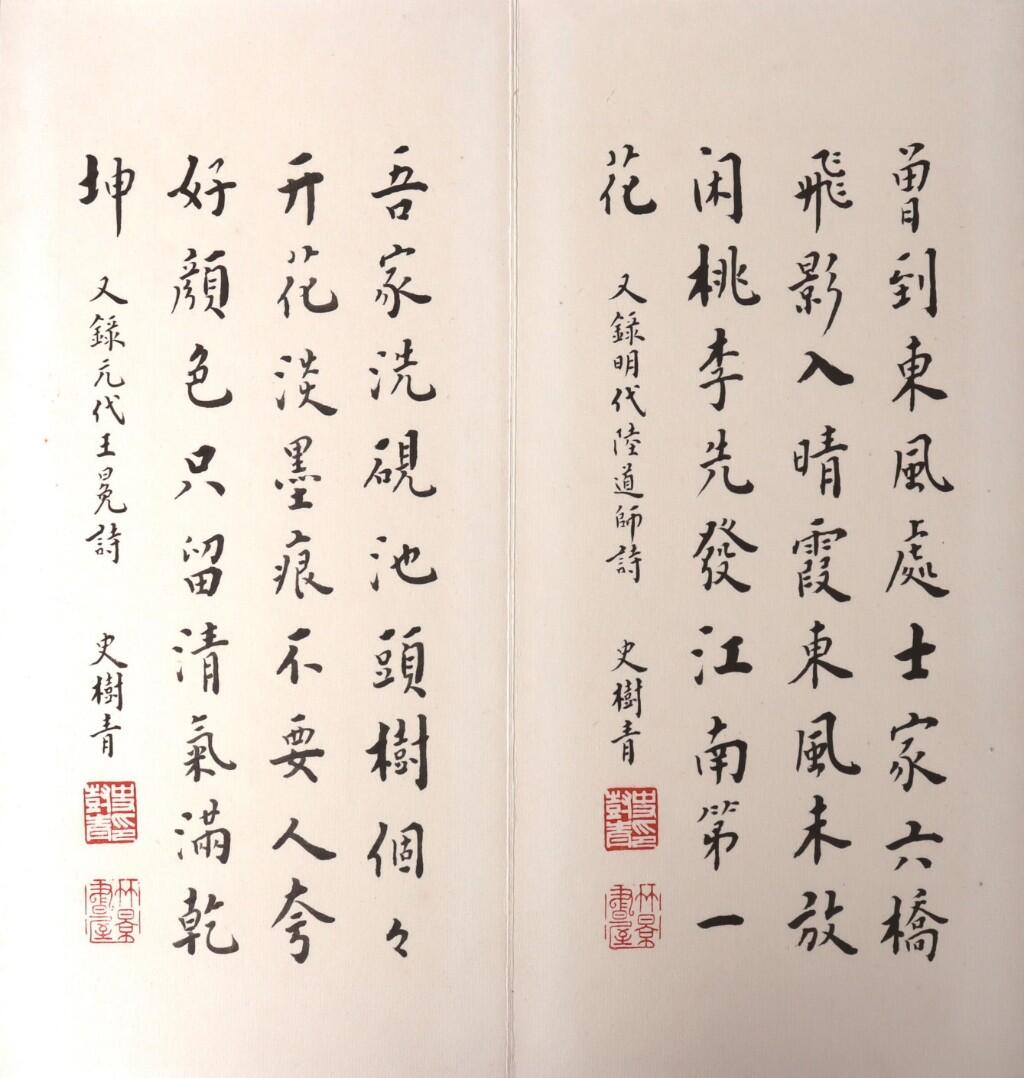 曾到東風處士家六橋
飛影入晴霞東風未放
闲桃李先發江南第一
花
又錄明代陸道師詩 史樹青
史印樹青
竹景書屋
吾家洗硯池頭樹個々
开花淡墨痕不要人夸
好顏色只留清氣滿乾
坤
又錄元代王冕詩 史樹青
史印樹青
竹景書屋